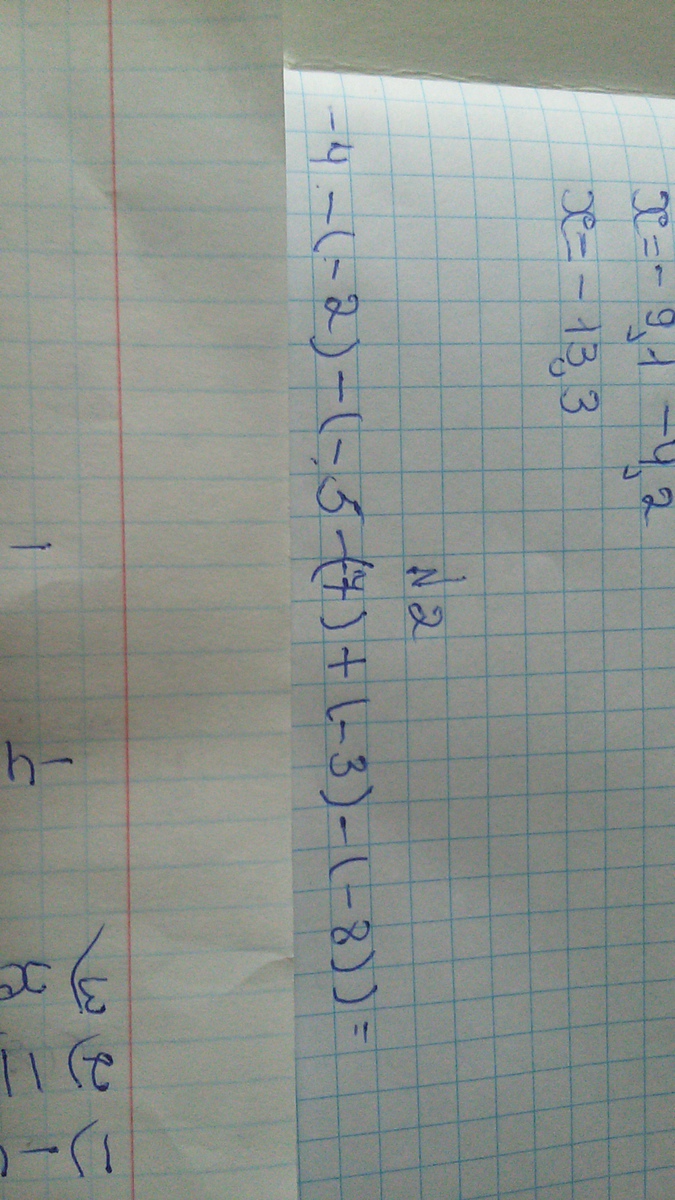 x = - 9,1 - 4,2
x = - 13,3
№ 2
-4 - (-2) - (-5 - (-7) + (-3) - (-8)) =
1)
2)
3)